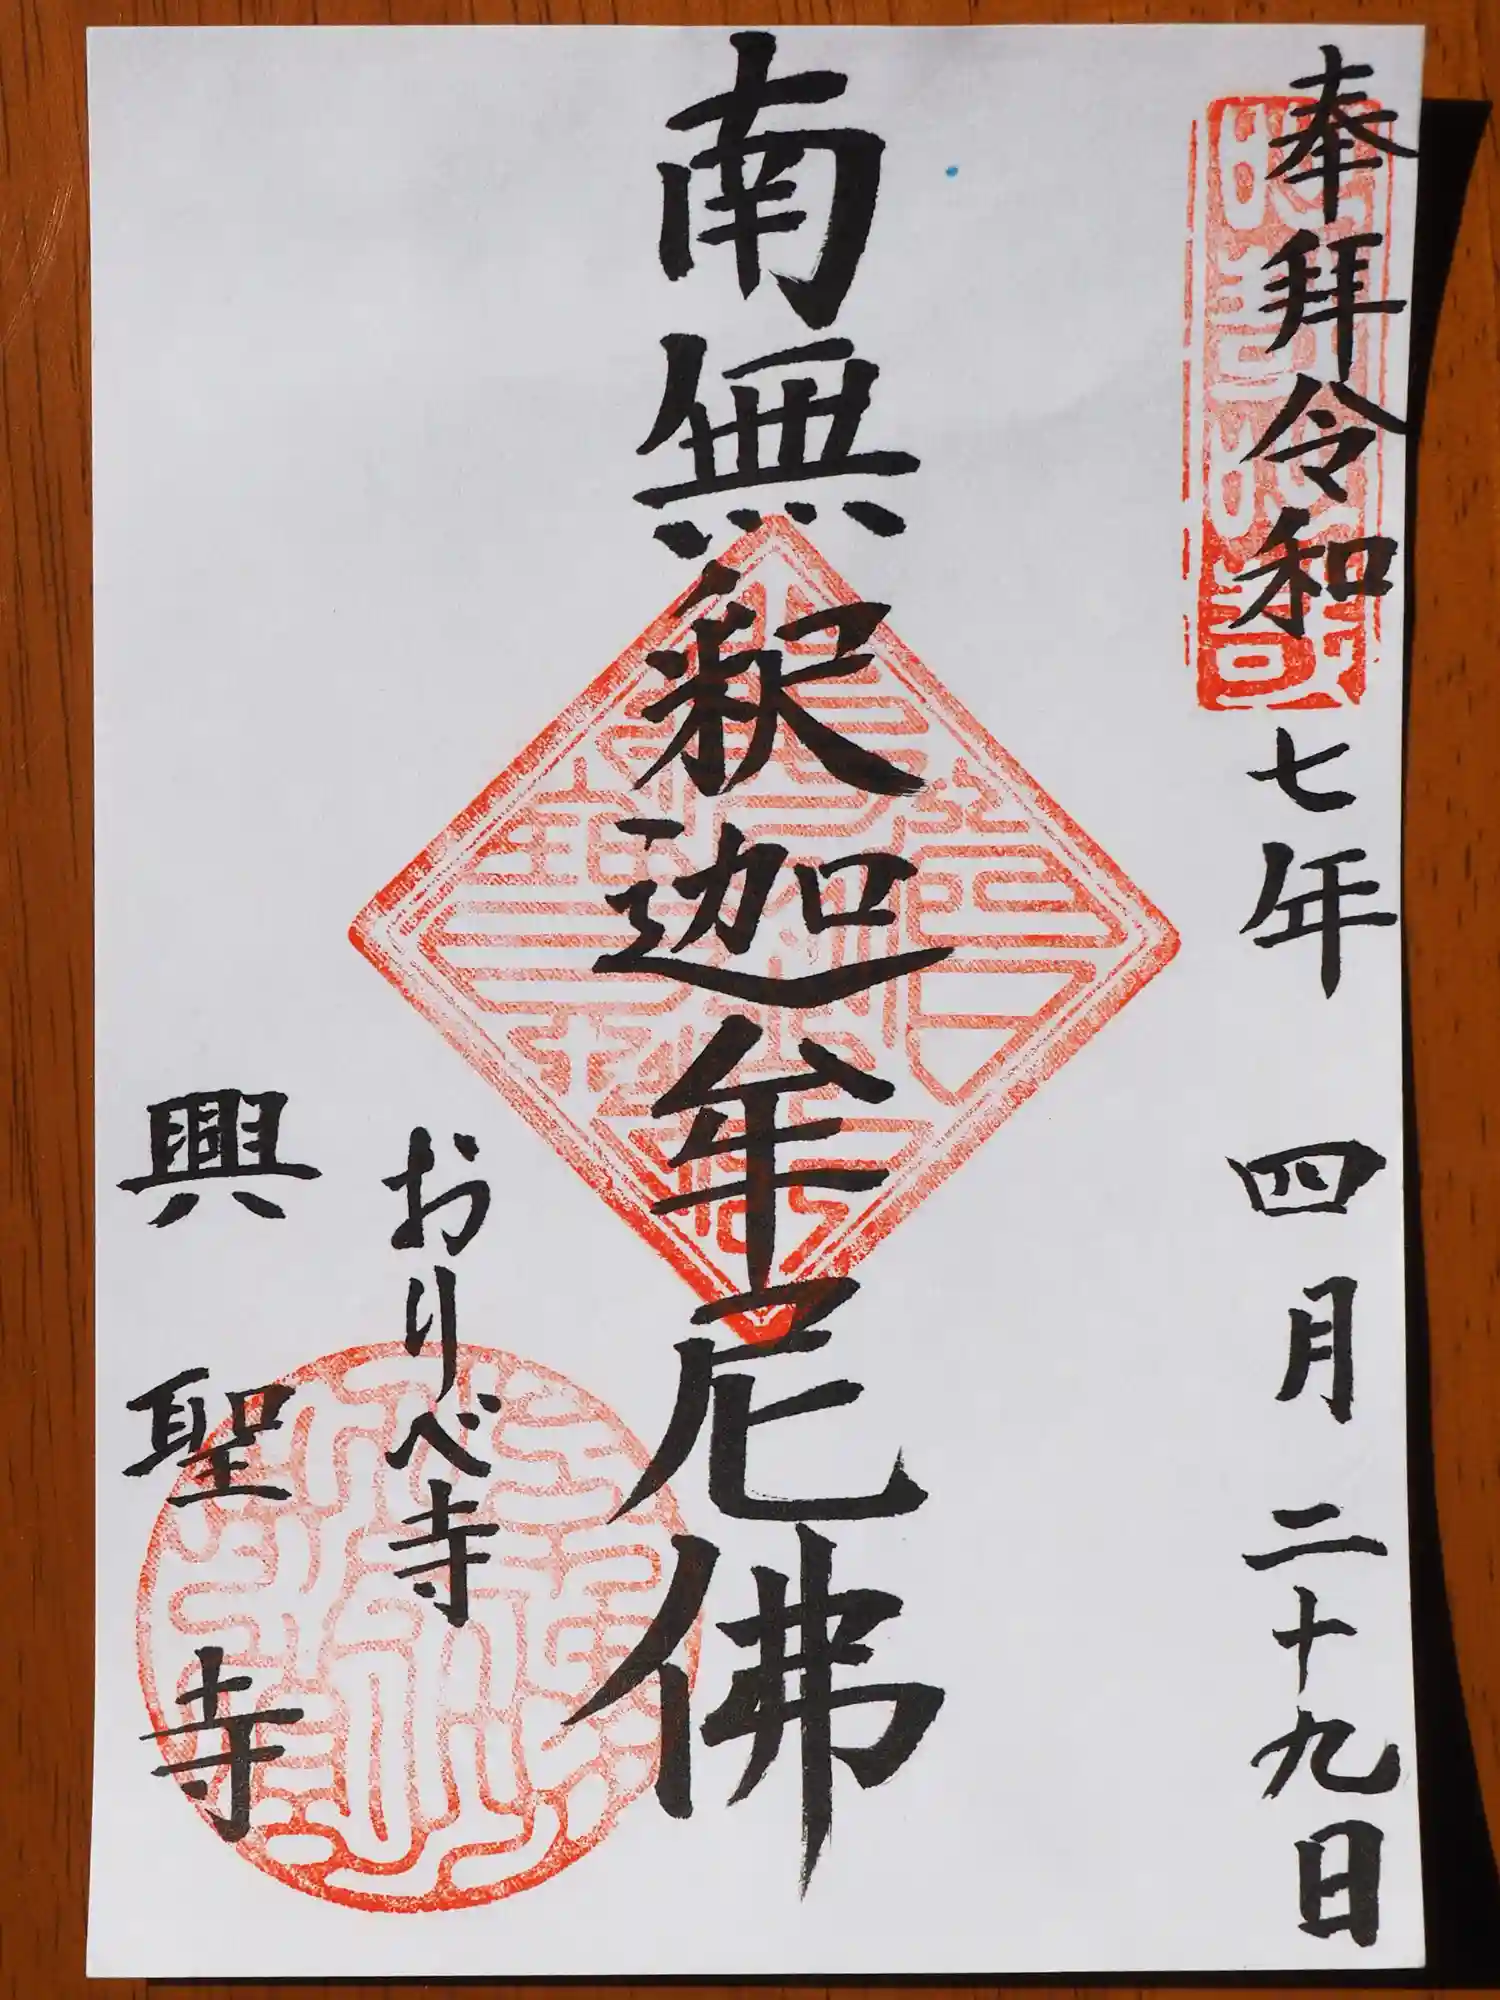 奉拝令和七年 四月二十九日
南無釈迦牟尼佛
おりべ寺
興聖寺